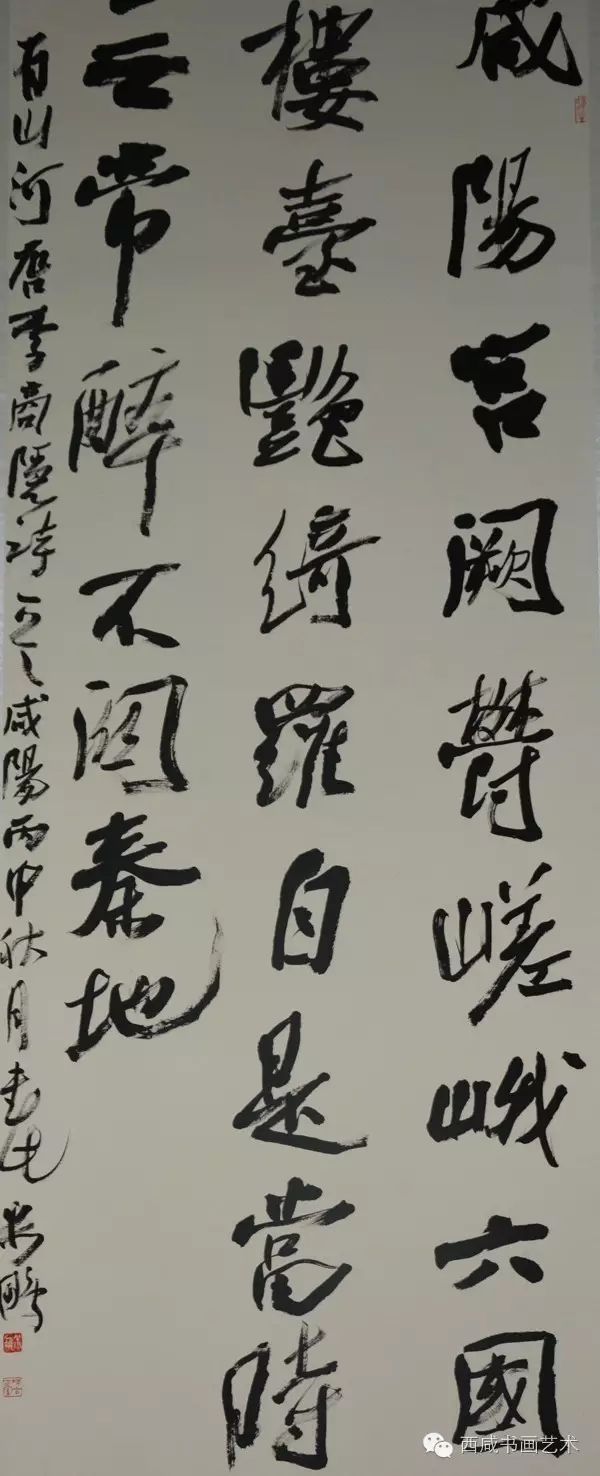 咸陽宮闕鬱嵯峨六國
樓臺艷綺羅自是當時
天帝醉不關秦地
有山河唐李商隱詩咸陽丙申秋月書鵬
西咸书画艺术